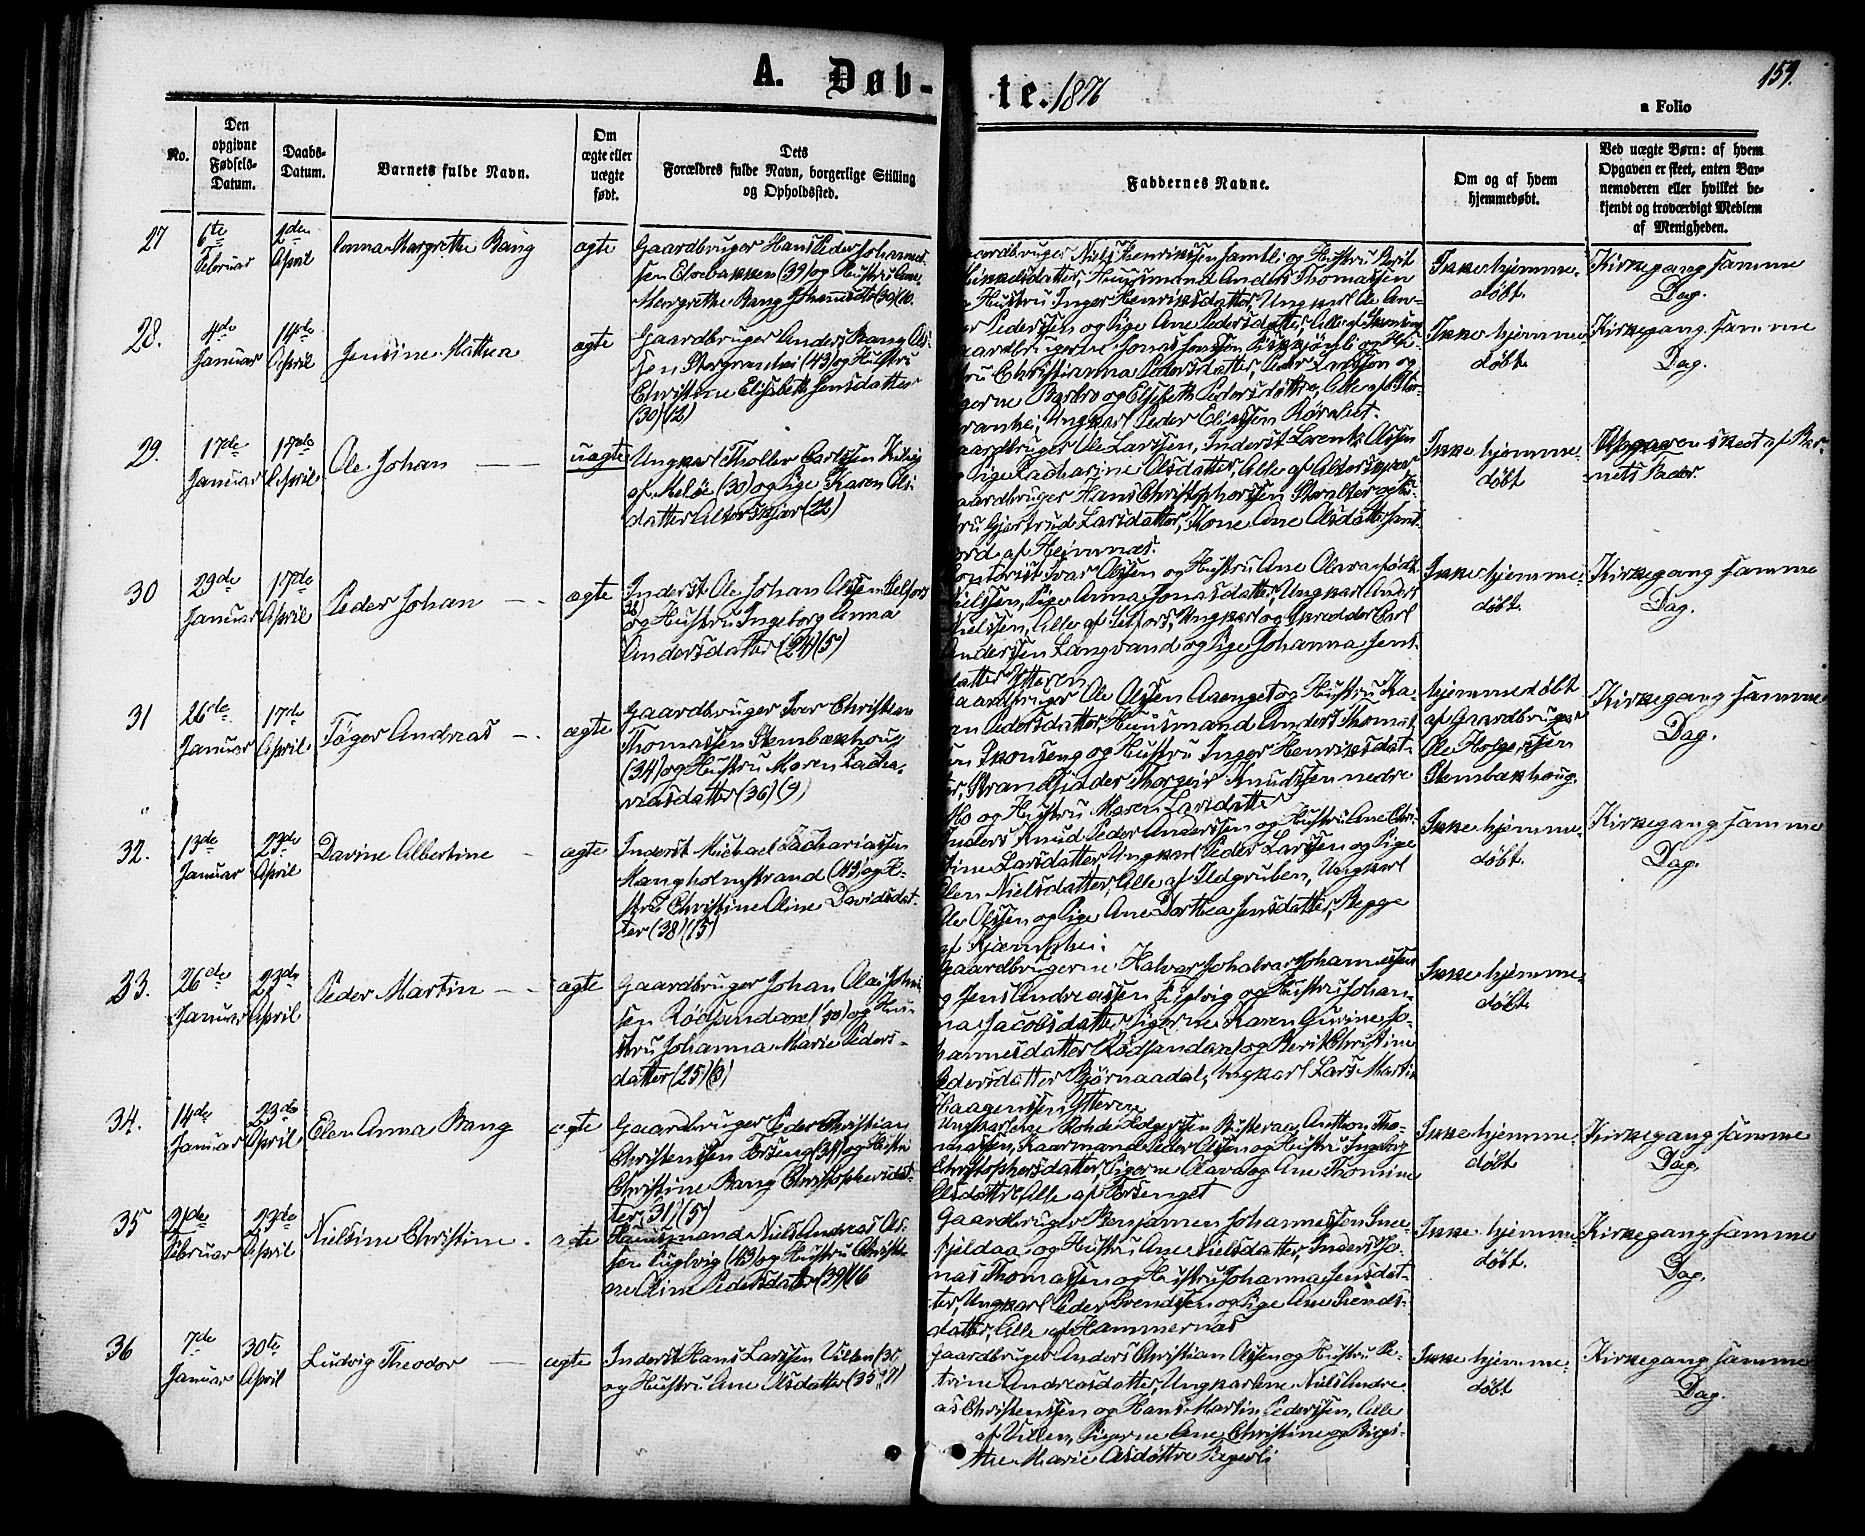 A. Døb-
te. 1876
159.
a Folio
No.
Den
opgivne
Fødsels-
Datum.
Daabs-
Datum.
Barnets fulde Navn.
Om
ægte eller
uægte
født.
Dets
Forældres fulde Navn, borgerlige Stilling
og Opholdssted.
Faddernes Navne.
Om og af hvem
hjemmedøbt.
Ved uægte Børn: af hvem
Opgaven er skeet, enten Bar-
nemoderen eller hvilket be-
kjendt og troværdigt Medlem
af Menigheden.
27
6te
Februar
2den
April
Anna Margrethe Bang
ægte
Gaardbruger Hans Peder Johannes-
sen (39) og Hustru Ane
Margrethe Bang (30)
Gaardbruger Niels Henrikssen og Hustru Berit
Huusmand Anders Thomassen
og Hustru Inger Henriksdatter, Ungkarl Ole An-
Pederssen og Pige Ane Pedersdatter, Alle af
Ikke hjemme-
døbt.
Kirkegang samme
Dag.
28.
4de
Januar
14de
April
Jensine Mathea
ægte
Gaardbruger Anders Bang Ol-
sen (43) og Hustru
Christine Elisabeth Jensdatter
(30) (12)
Gaardbrugerne Jonas og Hu-
stru Christianna Pedersdatter, Peder Larssen og
Pigerne Barbro og Elisabeth Pedersdøttre, Alle af Stor-
Ungkarl Peder Eliassen
Ikke hjemme-
døbt.
Kirkegang samme
Dag.
29.
17de
Januar
17de
April
Ole Johan
uægte
Ungkarl Tholler Carlssen
af Meløe (30) og Pige Karen Ols-
datter Alterskjær (22)
Gaardbruger Ole Larssen, Inderst Lorents Olssen
Pige Zacharine Olsdatter, Alle af Alterskjær,
Gaardbruger Hans Christophersen og Hu-
stru Gjertrud Larsdatter, Kone Ane Olsdatter
af Hemnæs.
Ikke hjemme-
døbt
Opgaven skeet af Bar-
nets Fader.
30
29de
Januar
17de
April
Peder Johan
ægte
Inderst Ole Johan Olssen Selfors
(28) og Hustru Ingeborg Anna
Andersdatter (24) (5)
Kontorist Ivar Olssen og Hustru Ane Olava født
Nielssen, Pige Anna Jonasdatter, Ungkarl Anders
Nielssen, Alle af Selfors, Ungkarl og Carl
Anderssen Langvand og Pige Johanna Jens-
datter Ytteren
Ikke hjemme-
døbt.
Kirkegang samme
Dag.
31
26de
Januar
17de
April
Tøger Andreas
ægte
Gaardbruger Iver Christian
Thomassen Stenbækhoug
(34) og Hustru Maren Zacha-
riasdatter (36) (9)
Gaardbruger Ole Olssen Aaenget og Hustru Ka-
ren Pedersdatter, Huusmand Anders Thomas-
sen Skonseng og Hustru Inger Henriksdat-
ter, Strandsidder Thorgeir Knudssen nedre
Mo og Hustru Maren Larsdatter
hjemmedøbt
af Gaardbruger
Ole Holgerssen
Stenbækhoug.
Kirkegang samme
Dag.
32.
13de
Januar
23de
April
Davine Albertine
ægte
Inderst Michael Zachariassen
Mængholmstrand (43) og Hu-
stru Christine Oline Davidsdat-
ter (38) (15)
Inderst Knud Peder Anderssen og Hustru Ane Chri-
stine Larsdatter, Ungkarl Peder Larssen og Pige
Elen Nielsdatter, Alle af Ildgruben, Ungkarl
Ole Olssen og Pige Ane Dorthea Jensdatter, Begge
af
Ikke hjemme-
døbt.
Kirkegang samme
Dag.
33.
26de
Januar
23de
April
Peder Martin
ægte
Gaardbruger Johan Olai Johns-
sen Rødsandaxel (30) og Hu-
stru Johanna Marie Peders-
datter (25) (3)
Gaardbrugerne Halvar Johannessen
og Jens Andreassen Fuglvig og Hustru Johan-
na Jacobsdatter, Pigerne Karen Gurine Jo-
hannesdatter Rødsandaxel og Berit Christine
Pedersdatter Bjørnaadal, Ungkarl Lars Martin
Haagenssen Ytteren
Ikke hjemme-
døbt.
34.
14de
Januar
23de
April
Elen Anna Bang
ægte
Gaardbruger Peder Christian
Christenssen Forseng (34) og Hustru
Christine Bang Christophersdat-
ter (31) (5)
Ungkarlene Rohde Holgerssen Anthon Tho-
massen, Kaarmand Peder Olssen og Hustru Ingeborg
Christophersdatter, Pigerne Olava og Ane Thomine
Olsdøttre, Alle af Forsenget
Ikke hjemme-
døbt
Kirkegang samme
Dag.
35
21de
Februar
23de
April
Nielsine Christine
ægte
Huusmand Niels Andreas Ols-
sen Fuglvig (43) og Hustru Christi-
ne Oline Pedersdatter (39) (16
Gaardbruger Benjamen Johannessen
og Hustru Ane Nielsdatter, Inderst Jo-
nas Thomassen og Hustru Johanna Jensdat-
ter, Ungkarl Peder Svendssen og Pige Ane Svends-
datter, Alle af Hammernæs
Ikke hjemme-
døbt.
Kirkegang samme
Dag.
36
7de
Januar
30te
April
Ludvig Theodor
ægte
Inderst Hans Larssen Villen (30
og Hustru Ane Olsdatter (35
Gaardbruger Anders Christian Olssen og Hustru Pe-
trine Andreasdatter, Ungkarlene Niels Andre-
as Christenssen og Hans Martin Pederssen, Alle
af Villen, Pigerne Ane Christine og Birgi-
the Marie Olsdøttre
Ikke hjemme-
døbt
Kirkegang samme
Dag.